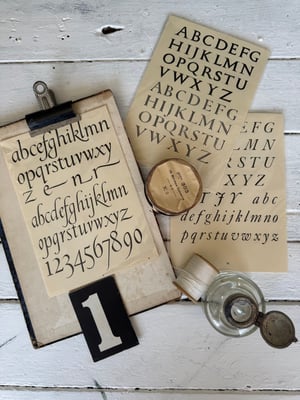 ABCDEFG
HIJKLMN
OPQRSTU
VWXYZ
ABCDEFG
HIJKLMN
OPQRSTU
VWXYZ
abcdefghijklmn
opqrstuvwxy
z e n r
abcdefghijklmn
opqrstuvwxyz
1234567890
EFG
LMN
STU
YZ
TJY abc
defghijklmno
pqrstuvwxyz
1